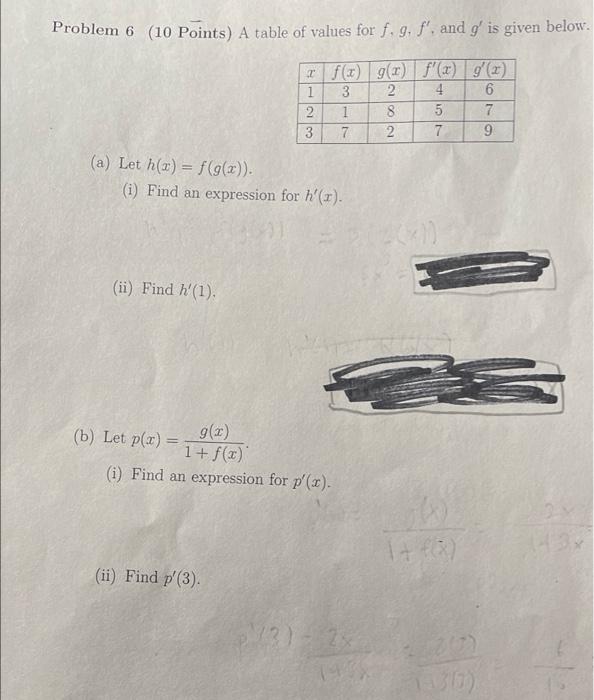 Problem 6 (10 Points) A table of values for f, g, f', and g' is given below.
x f(x) g(x) f'(x) g'(x)
1 3 2 4 6
2 1 8 5 7
3 7 2 7 9
(a) Let h(x) = f(g(x)).
(i) Find an expression for h'(x).
(ii) Find h'(1).
(b) Let p(x) = g(x) / 1 + f(x).
(i) Find an expression for p'(x).
(ii) Find p'(3).